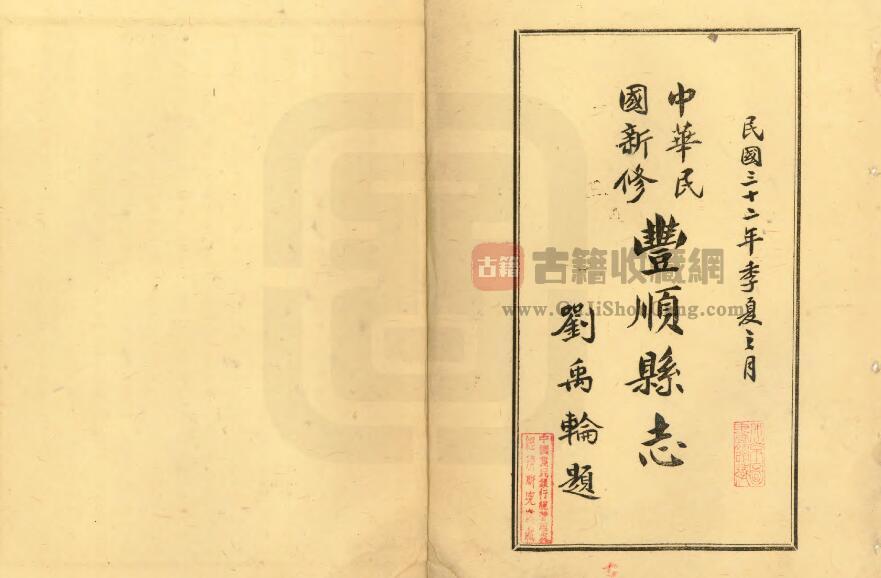 民國三十二年季夏之月
中華民
國新修
豐順縣志
劉禹輪題
古籍
古籍收藏網
www.GuJiShouCang.com